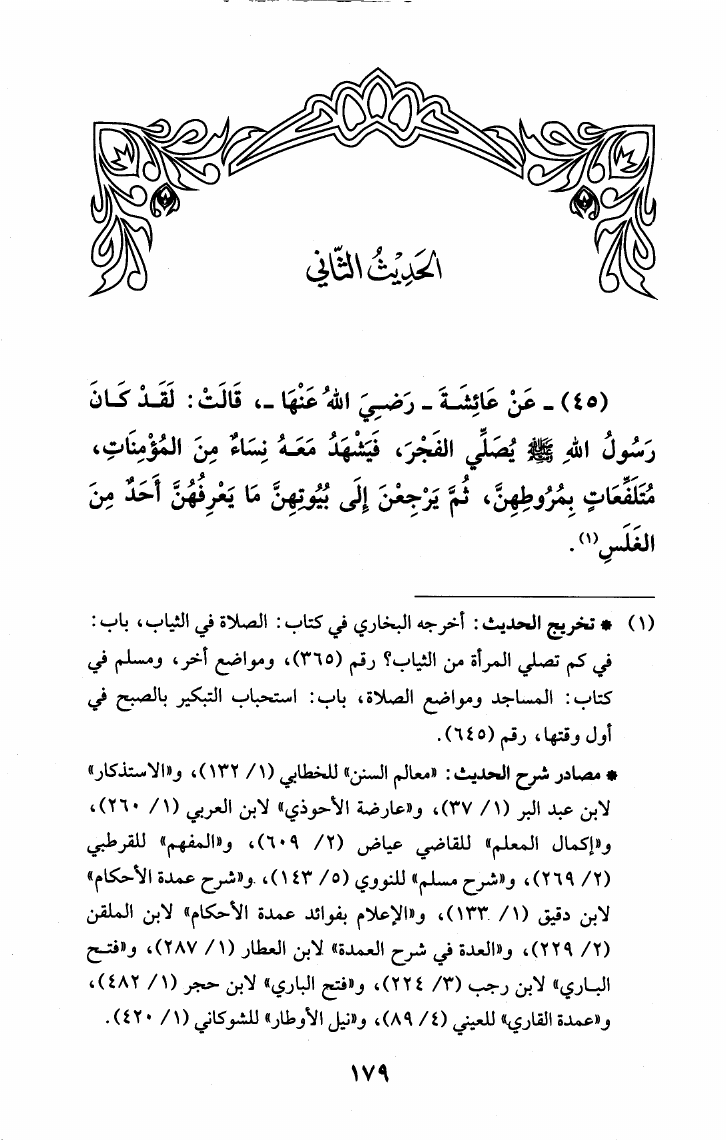 الحَدِيْثُ الثَّاني
(٤٥) ـ عَنْ عَائِشَـةَ ـ رَضـِيَ اللهُ عَنْهَا ـ، قَالَتْ: لَقَـدْ كَـانَ
رَسُولُ اللهِ ﷺ يُصَلِّي الفَجْرَ، فَيَشْهَدُ مَعَـهُ نِسَاءٌ مِنَ المُؤْمِنَاتِ،
مُتَلَفِّعَاتٍ بِمُرُوطِهِنَّ، ثُمَّ يَرْجِعْنَ إِلَى بُيُوتِهِنَّ مَا يَعْرِفُهُنَّ أَحَدٌ مِنَ
الغَلَسِ(١).
(١) * تخريج الحديث: أخرجه البخاري في كتاب: الصلاة في الثياب، باب:
في كم تصلي المرأة من الثياب؟ رقم (٣٦٥)، ومواضع أخر، ومسلم في
كتاب: المساجد ومواضع الصلاة، باب: استحباب التبكير بالصبح في
أول وقتها، رقم (٦٤٥).
* مصادر شرح الحديث: «معالم السنن» للخطابي (١/ ١٣٢)، و«الاستذكار»
لابن عبد البر (١/ ٣٧)، و«عارضة الأحوذي» لابن العربي (١/ ٢٦٠)،
و«إكمال المعلم» للقاضي عياض (٢/ ٦٠٩)، و«المفهم» للقرطبي
(٢/ ٢٦٩)، و«شرح مسلم» للنووي (٥/ ١٤٣)، و«شرح عمدة الأحكام»
لابن دقيق (١/ ١٣٣)، و«الإعلام بفوائد عمدة الأحكام» لابن الملقن
(٢/ ٢٢٩)، و«العدة في شرح العمدة» لابن العطار (١/ ٢٨٧)، و«فتـح
البـاري» لابن رجب (٣/ ٢٢٤)، و«فتح الباري» لابن حجر (١/ ٤٨٢)،
و«عمدة القاري» للعيني (٤/ ٨٩)، و«نيل الأوطار» للشوكاني (١/ ٤٢٠).
١٧٩